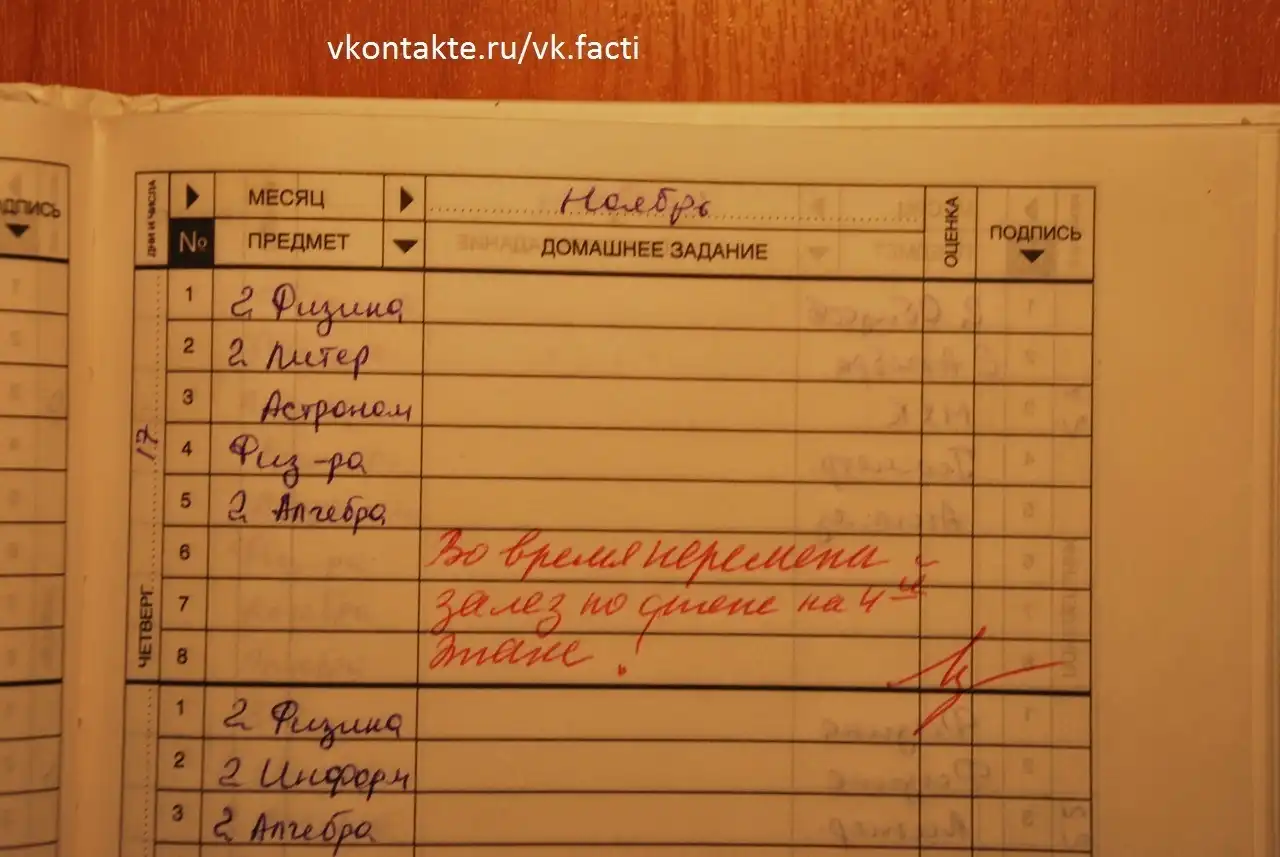 vkontakte.ru/vk.facti
ДНИ И ЧИСЛА
МЕСЯЦ Ноябрь
№ ПРЕДМЕТ ДОМАШНЕЕ ЗАДАНИЕ ОЦЕНКА ПОДПИСЬ
ОДПИСЬ
ЧЕТВЕРГ 17
1 2 Физика
2 2 Литер
3 Астроном
4 Физ-ра
5 2 Алгебра
6 Во время перемены
7 залез по стене на 4ый
8 этаж !
1 2 Физика
2 2 Информ
3 2 Алгебра